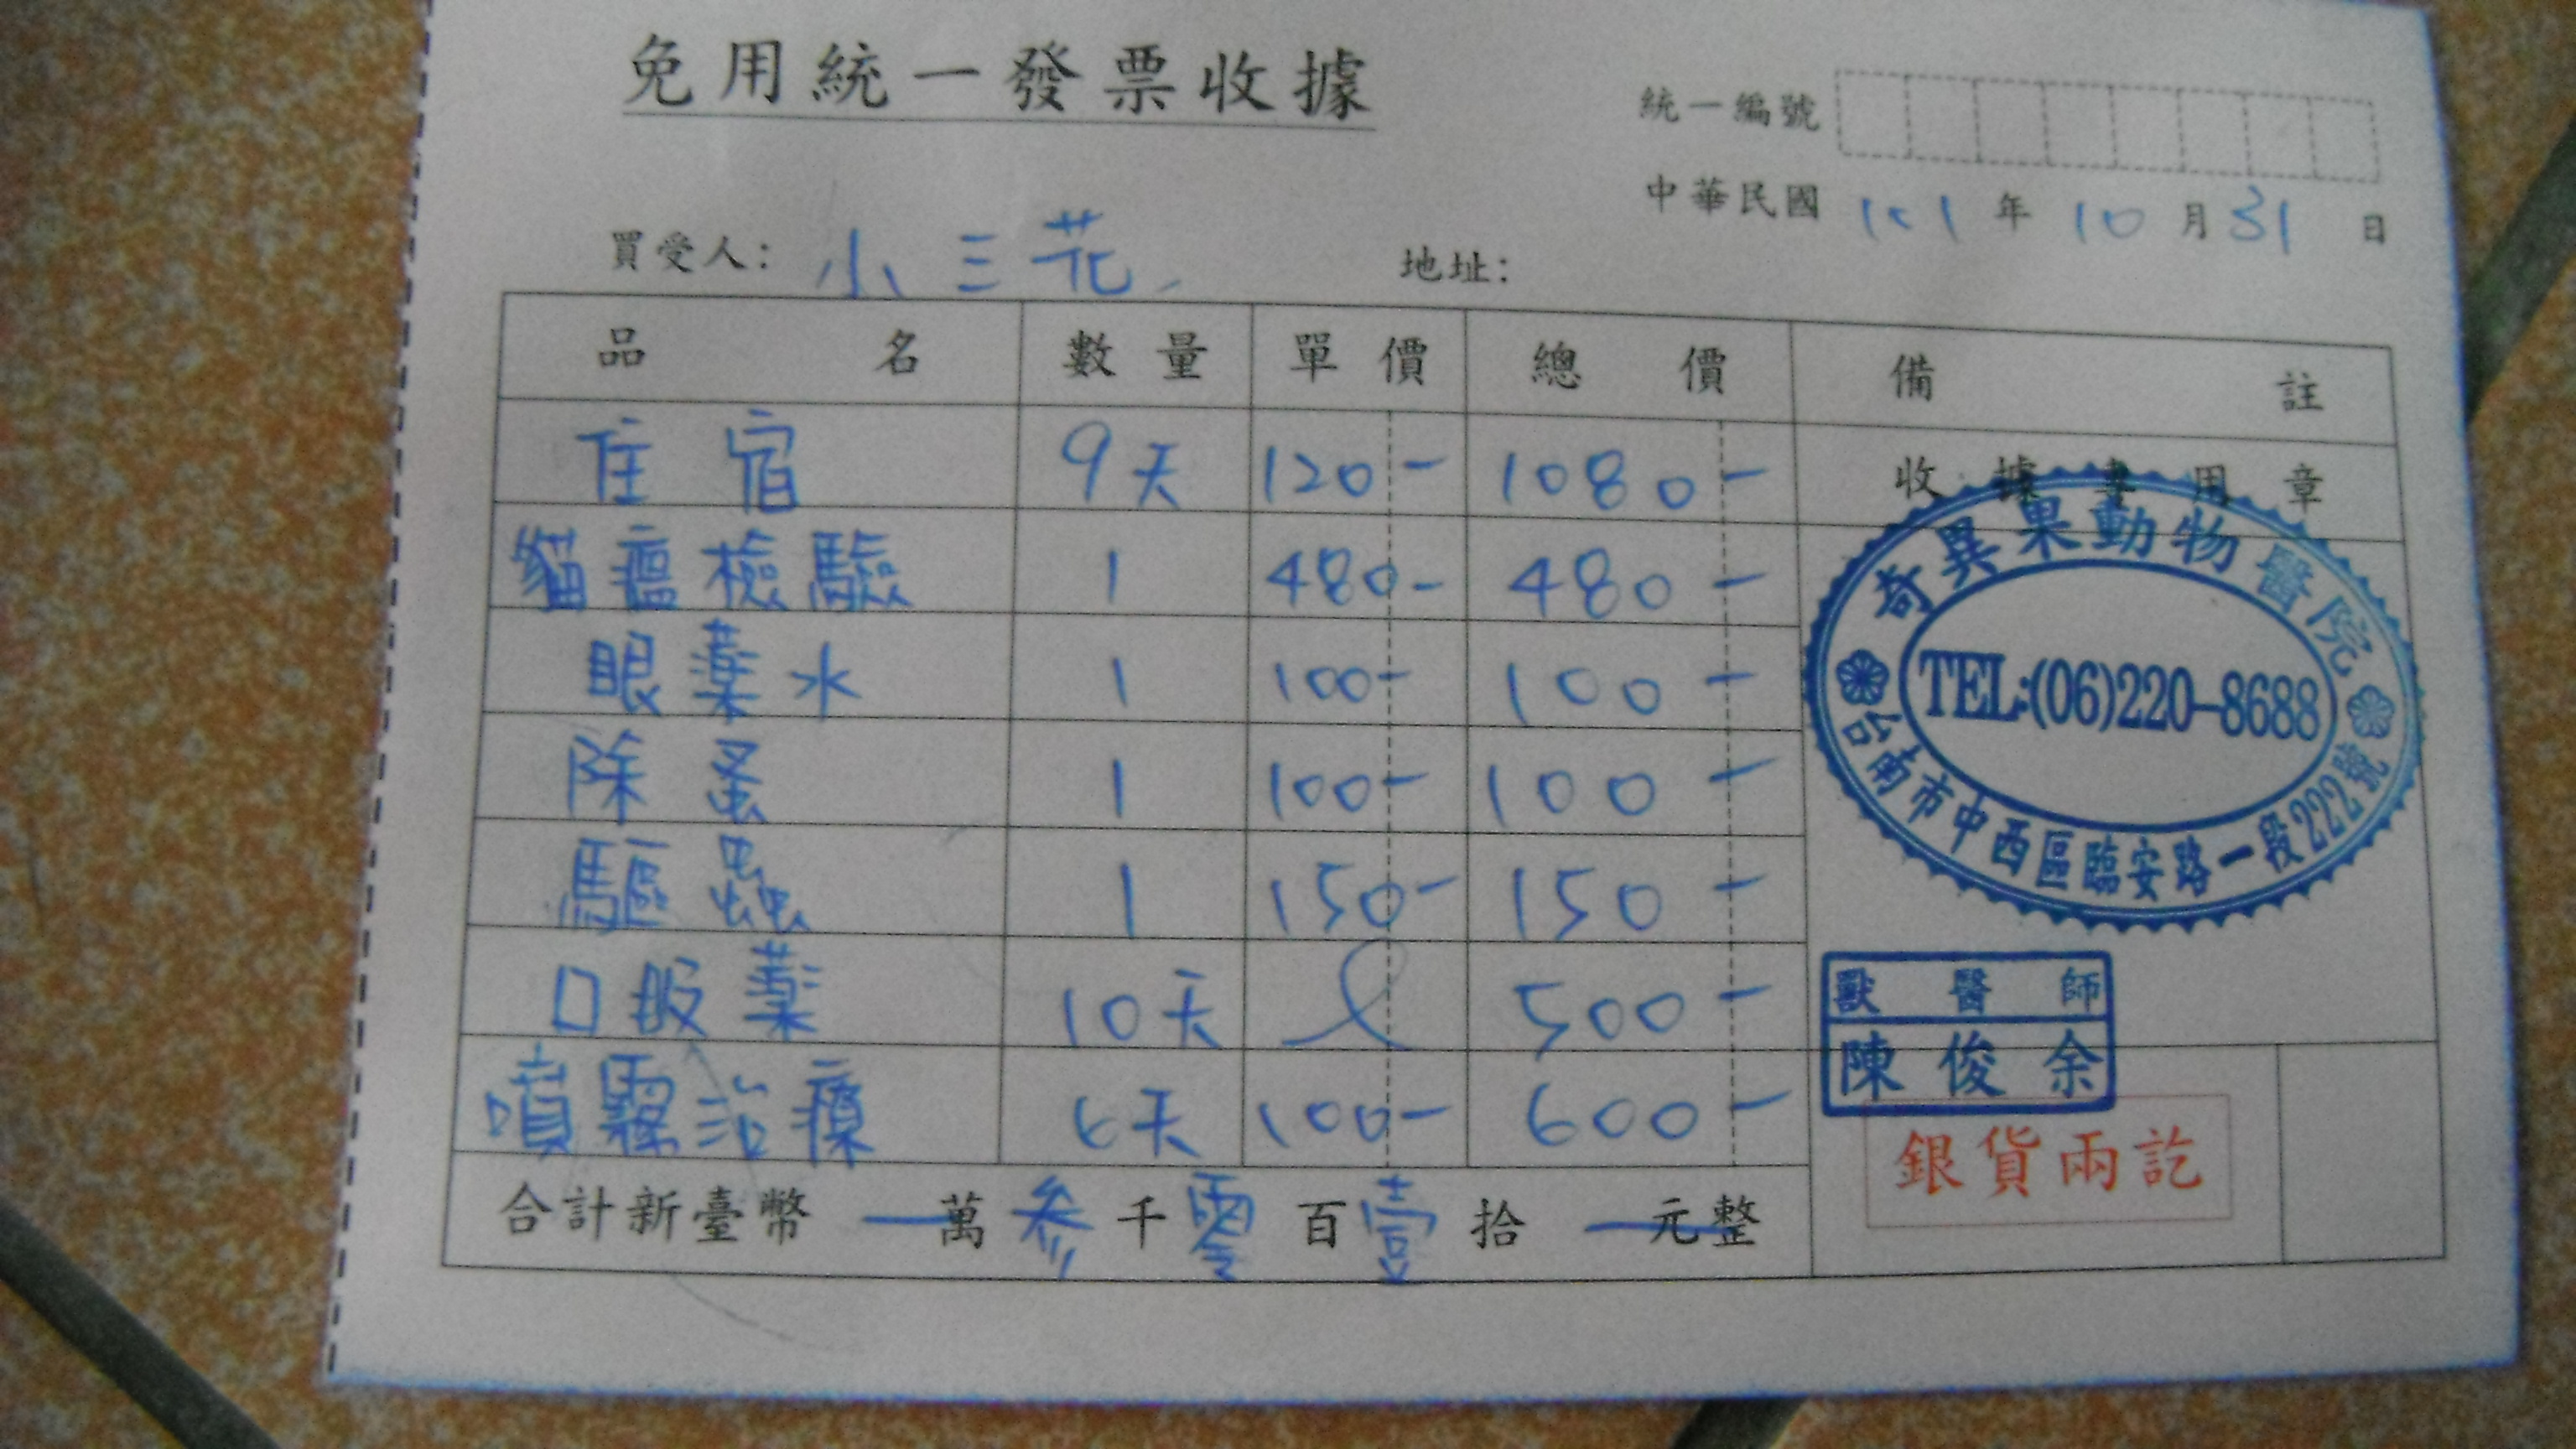 免用統一發票收據
統一編號
中華民國 101 年 10 月 31 日
買受人: 小三花 地址:
品名 數量 單價 總價 備註
住宿 9天 120- 1080-
收據專用章
貓瘟檢驗 1 480- 480-
眼藥水 1 100- 100-
除蚤 1 100- 100-
驅蟲 1 150- 150-
口服藥 10天 500-
噴霧治療 6天 100- 600-
合計新臺幣 萬 參 千 零 百 壹 拾 元整
奇異果動物醫院
TEL:(06)220-8688
台南市中西區臨安路一段222號
獸醫師
陳俊余
銀貨兩訖